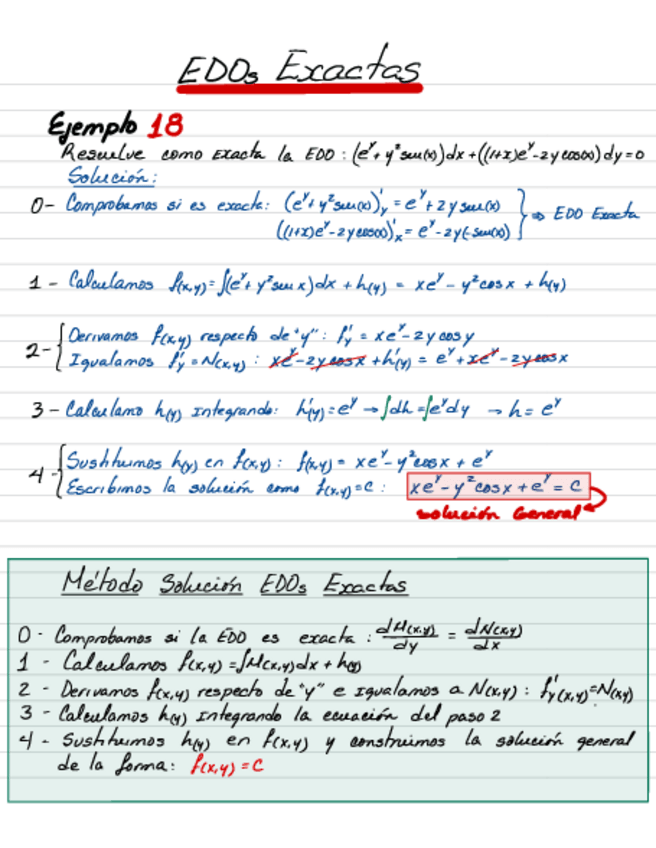 EDOs Exactas
Ejemplo 18
Resuelve como exacta la EDO : (e^y + y² sen(x))dx + ((1+x)e^y - 2y cos(x))dy = 0
Solución:
0- Comprobamos si es exacta: (e^y + y² sen(x))'_y = e^y + 2y sen(x)
((1+x)e^y - 2y cos(x))'_x = e^y - 2y(-sen(x)) } ⇒ EDO Exacta
1 - Calculamos f(x,y) = ∫(e^y + y² sen x)dx + h(y) = xe^y - y² cos x + h(y)
2- { Derivamos f(x,y) respecto de "y" : f'_y = xe^y - 2y cos y
Igualamos f'_y = N(x,y) : xe^y - 2y cos x + h'(y) = e^y + xe^y - 2y cos x
3 - Calculamo h(y) integrando: h'(y) = e^y → ∫dh = ∫e^y dy → h = e^y
4 - { Sustituimos h(y) en f(x,y) : f(x,y) = xe^y - y² cos x + e^y
Escribimos la solución como f(x,y) = C : xe^y - y² cos x + e^y = C
Solución General
Método Solución EDOs Exactas
0 - Comprobamos si la EDO es exacta : dM(x,y)/dy = dN(x,y)/dx
1 - Calculamos f(x,y) = ∫M(x,y)dx + h(y)
2 - Derivamos f(x,y) respecto de "y" e igualamos a N(x,y) : f'_y(x,y) = N(x,y)
3 - Calculamos h(y) integrando la ecuación del paso 2
4 - Sustituimos h(y) en f(x,y) y construimos la solución general
de la forma: f(x,y) = C